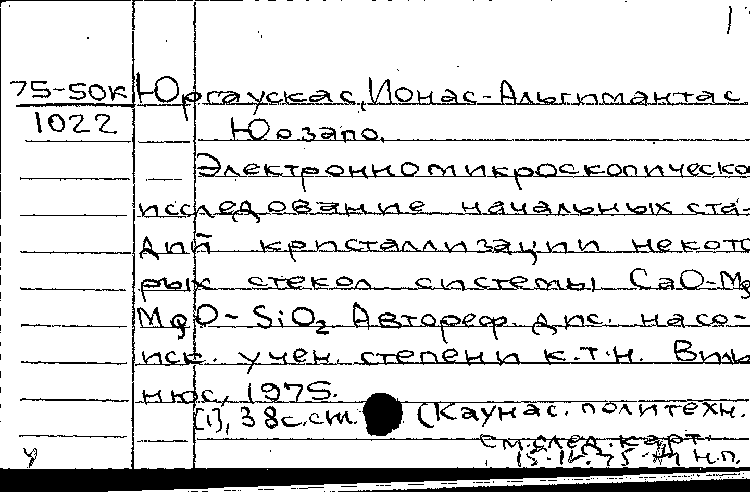 1
75-50к Юргаускас, Ионас-Альгимантас
1022 Юозапо.
Электронномикроскопическо
исследование начальных ста-
дий кристаллизации некото
рых стекол системы CaO-Mg
MgO-SiO₂ Автореф. дис. на со-
иск. учен. степени к.т.н. Виль
нюс, 1975.
[1], 38с.ст. (Каунас. политехн.
см.след.карт.
у н.п.